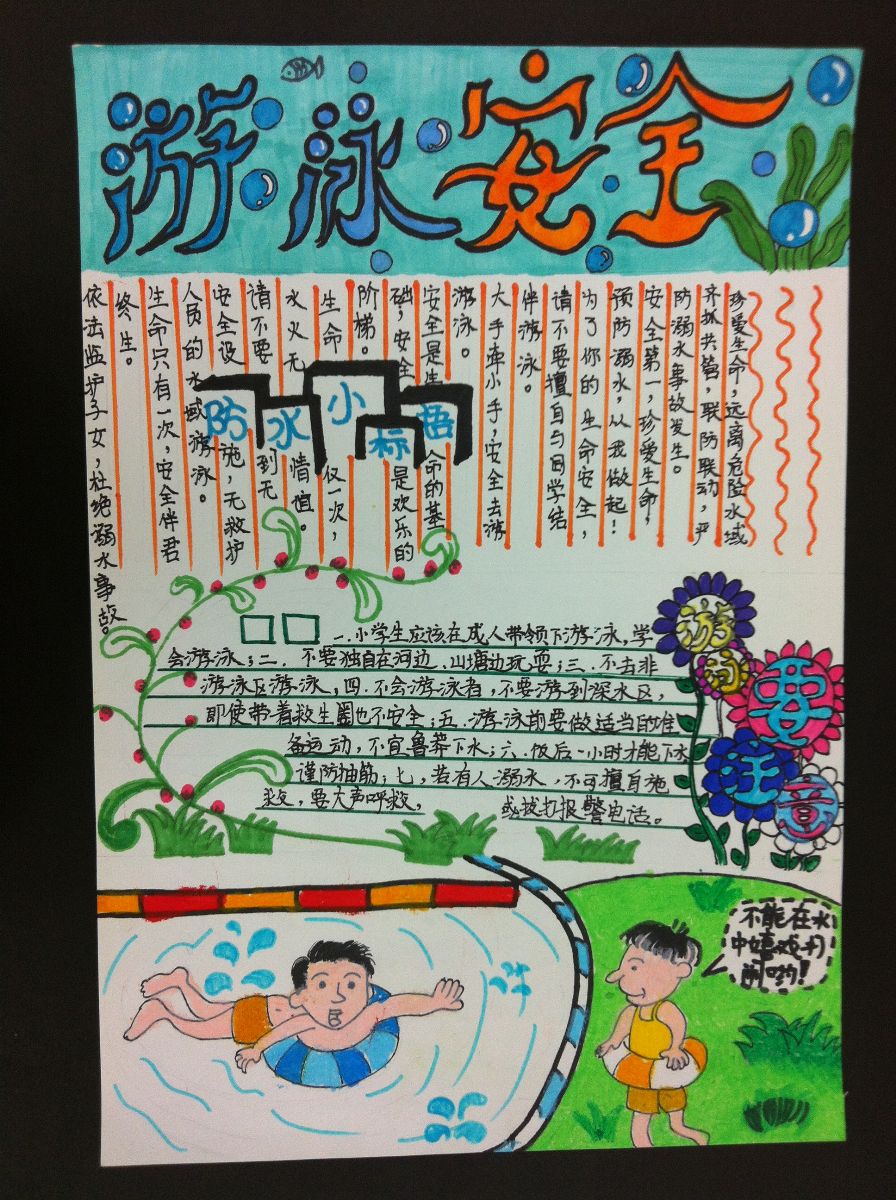 游泳安全
珍爱生命，远离危险水域
齐抓共管，联防联动，严
防溺水事故发生。
安全第一，珍爱生命，
预防溺水，从我做起！
为了你的生命安全，
请不要擅自与同学结
伴游泳。
大手牵小手，安全去游
游泳。
安全是生命的基
础，安全是欢乐的
阶梯。
生命仅一次，
水火无情谊。
请不要到无
安全设施，无救护
人员的水域游泳。
生命只有一次，安全伴君
终生。
依法监护子女，杜绝溺水事故。
防水小标语
一.小学生应该在成人带领下游泳,学
会游泳；二.不要独自在河边、山塘边玩耍；三.不去非
游泳区游泳,四.不会游泳者,不要游到深水区，
即使带着救生圈也不安全；五.游泳前要做适当的准
备运动，不宜鲁莽下水；六.饭后一小时才能下水
谨防抽筋；七，若有人溺水，不可擅自施
救，要大声呼救， 或拨打报警电话。
游
要
注
意
不能在水
中嬉戏打
闹哟！